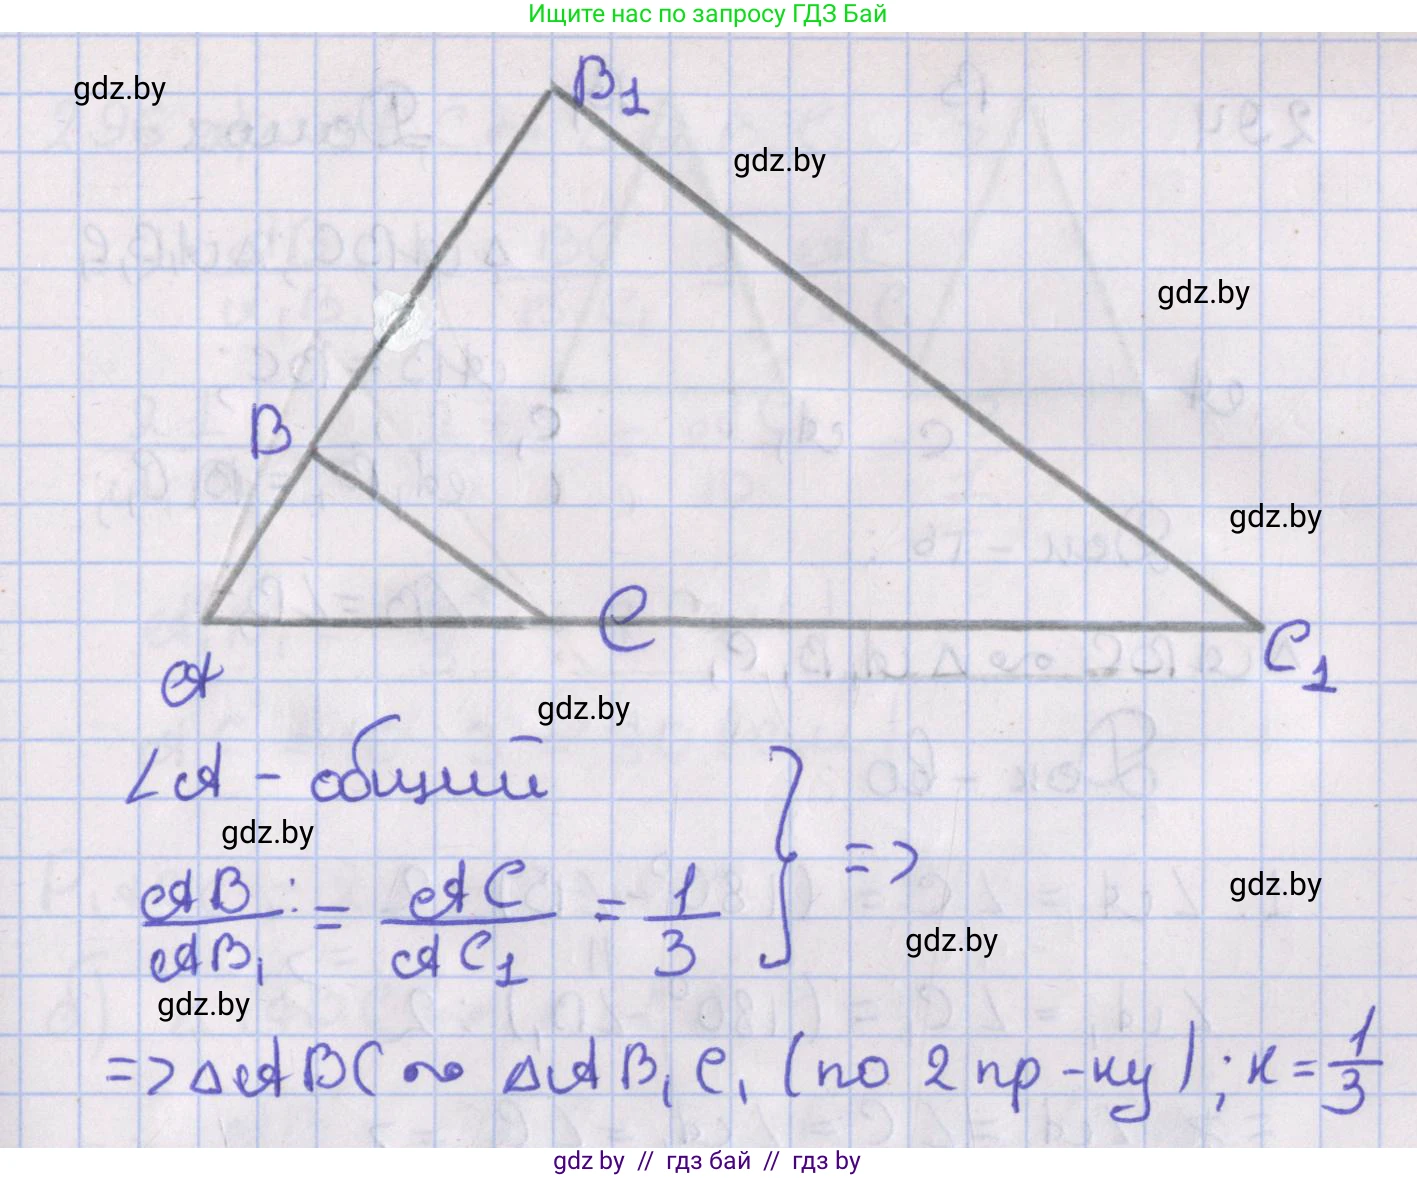 Ищите нас по запросу ГДЗ Бай
B1
gdz.by
gdz.by
gdz.by
B
gdz.by
C
C1
A
gdz.by
∠A - общий
gdz.by
AB/AB1 = AC/AC1 = 1/3 } =>
gdz.by
gdz.by
gdz.by
=> △ABC ∾ △AB1C1 (по 2 пр-ку); к = 1/3
gdz by // гдз бай // гдз by